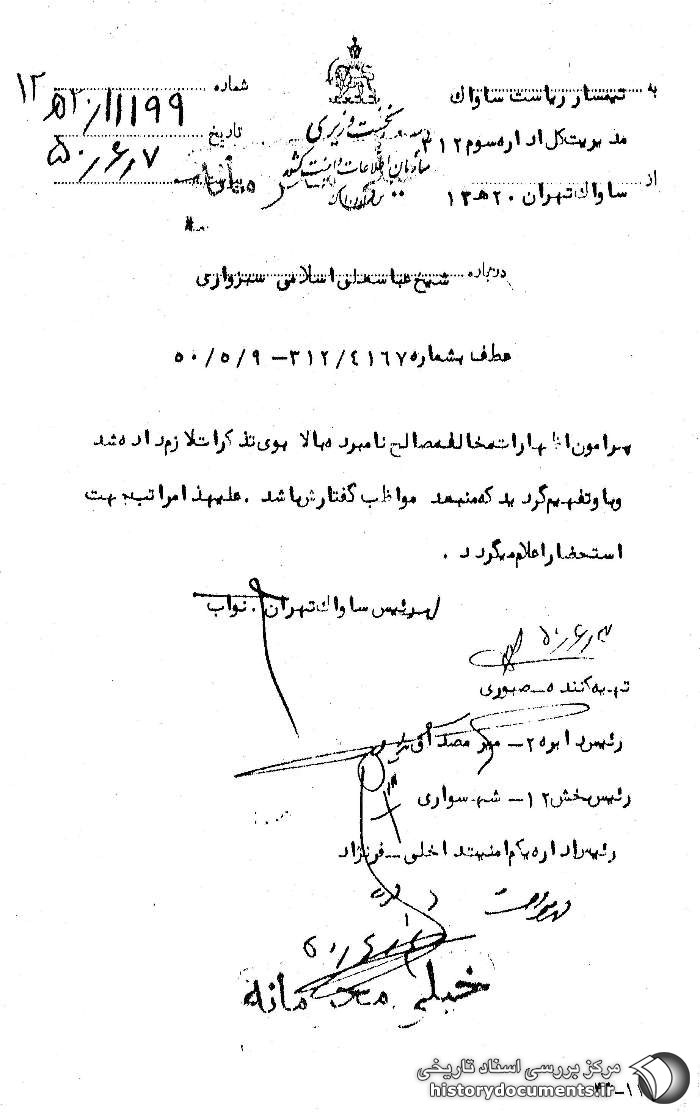 به تیمسار ریاست ساواک
مدیریت کل اداره سوم ۳۱۲
از ساواک تهران ۲۰ ه‍ ۱۲
نخست وزیری
سازمان اطلاعات و امنیت کشور
شماره ۱۱۱۹۹/۲۰ ه‍ ۱۲
تاریخ ۵۰/۶/۷
درباره شیخ عباسعلی اسلامی سبزواری
عطف بشماره ۳۱۲/٤۱٦۷ – ۵۰/۵/۹
پیرامون اظهارات مخالف مصالح نامبرده بالا بوی تذکرات لازم داده شد
و باو تفهیم گردید که منبعد مواظب گفتارش باشد . علیهذا مراتب جهت
استحضار اعلام میگردد .
رئیس ساواک تهران . نواب
تهیه کننده – صبوری
رئیس دایره ۲ – میر مصدق
رئیس بخش ۱۲ – شهسواری
رئیس اداره یکم امنیت داخلی – فرنژاد
خیلی محرمانه
مرکز بررسی اسناد تاریخی
historydocuments.ir